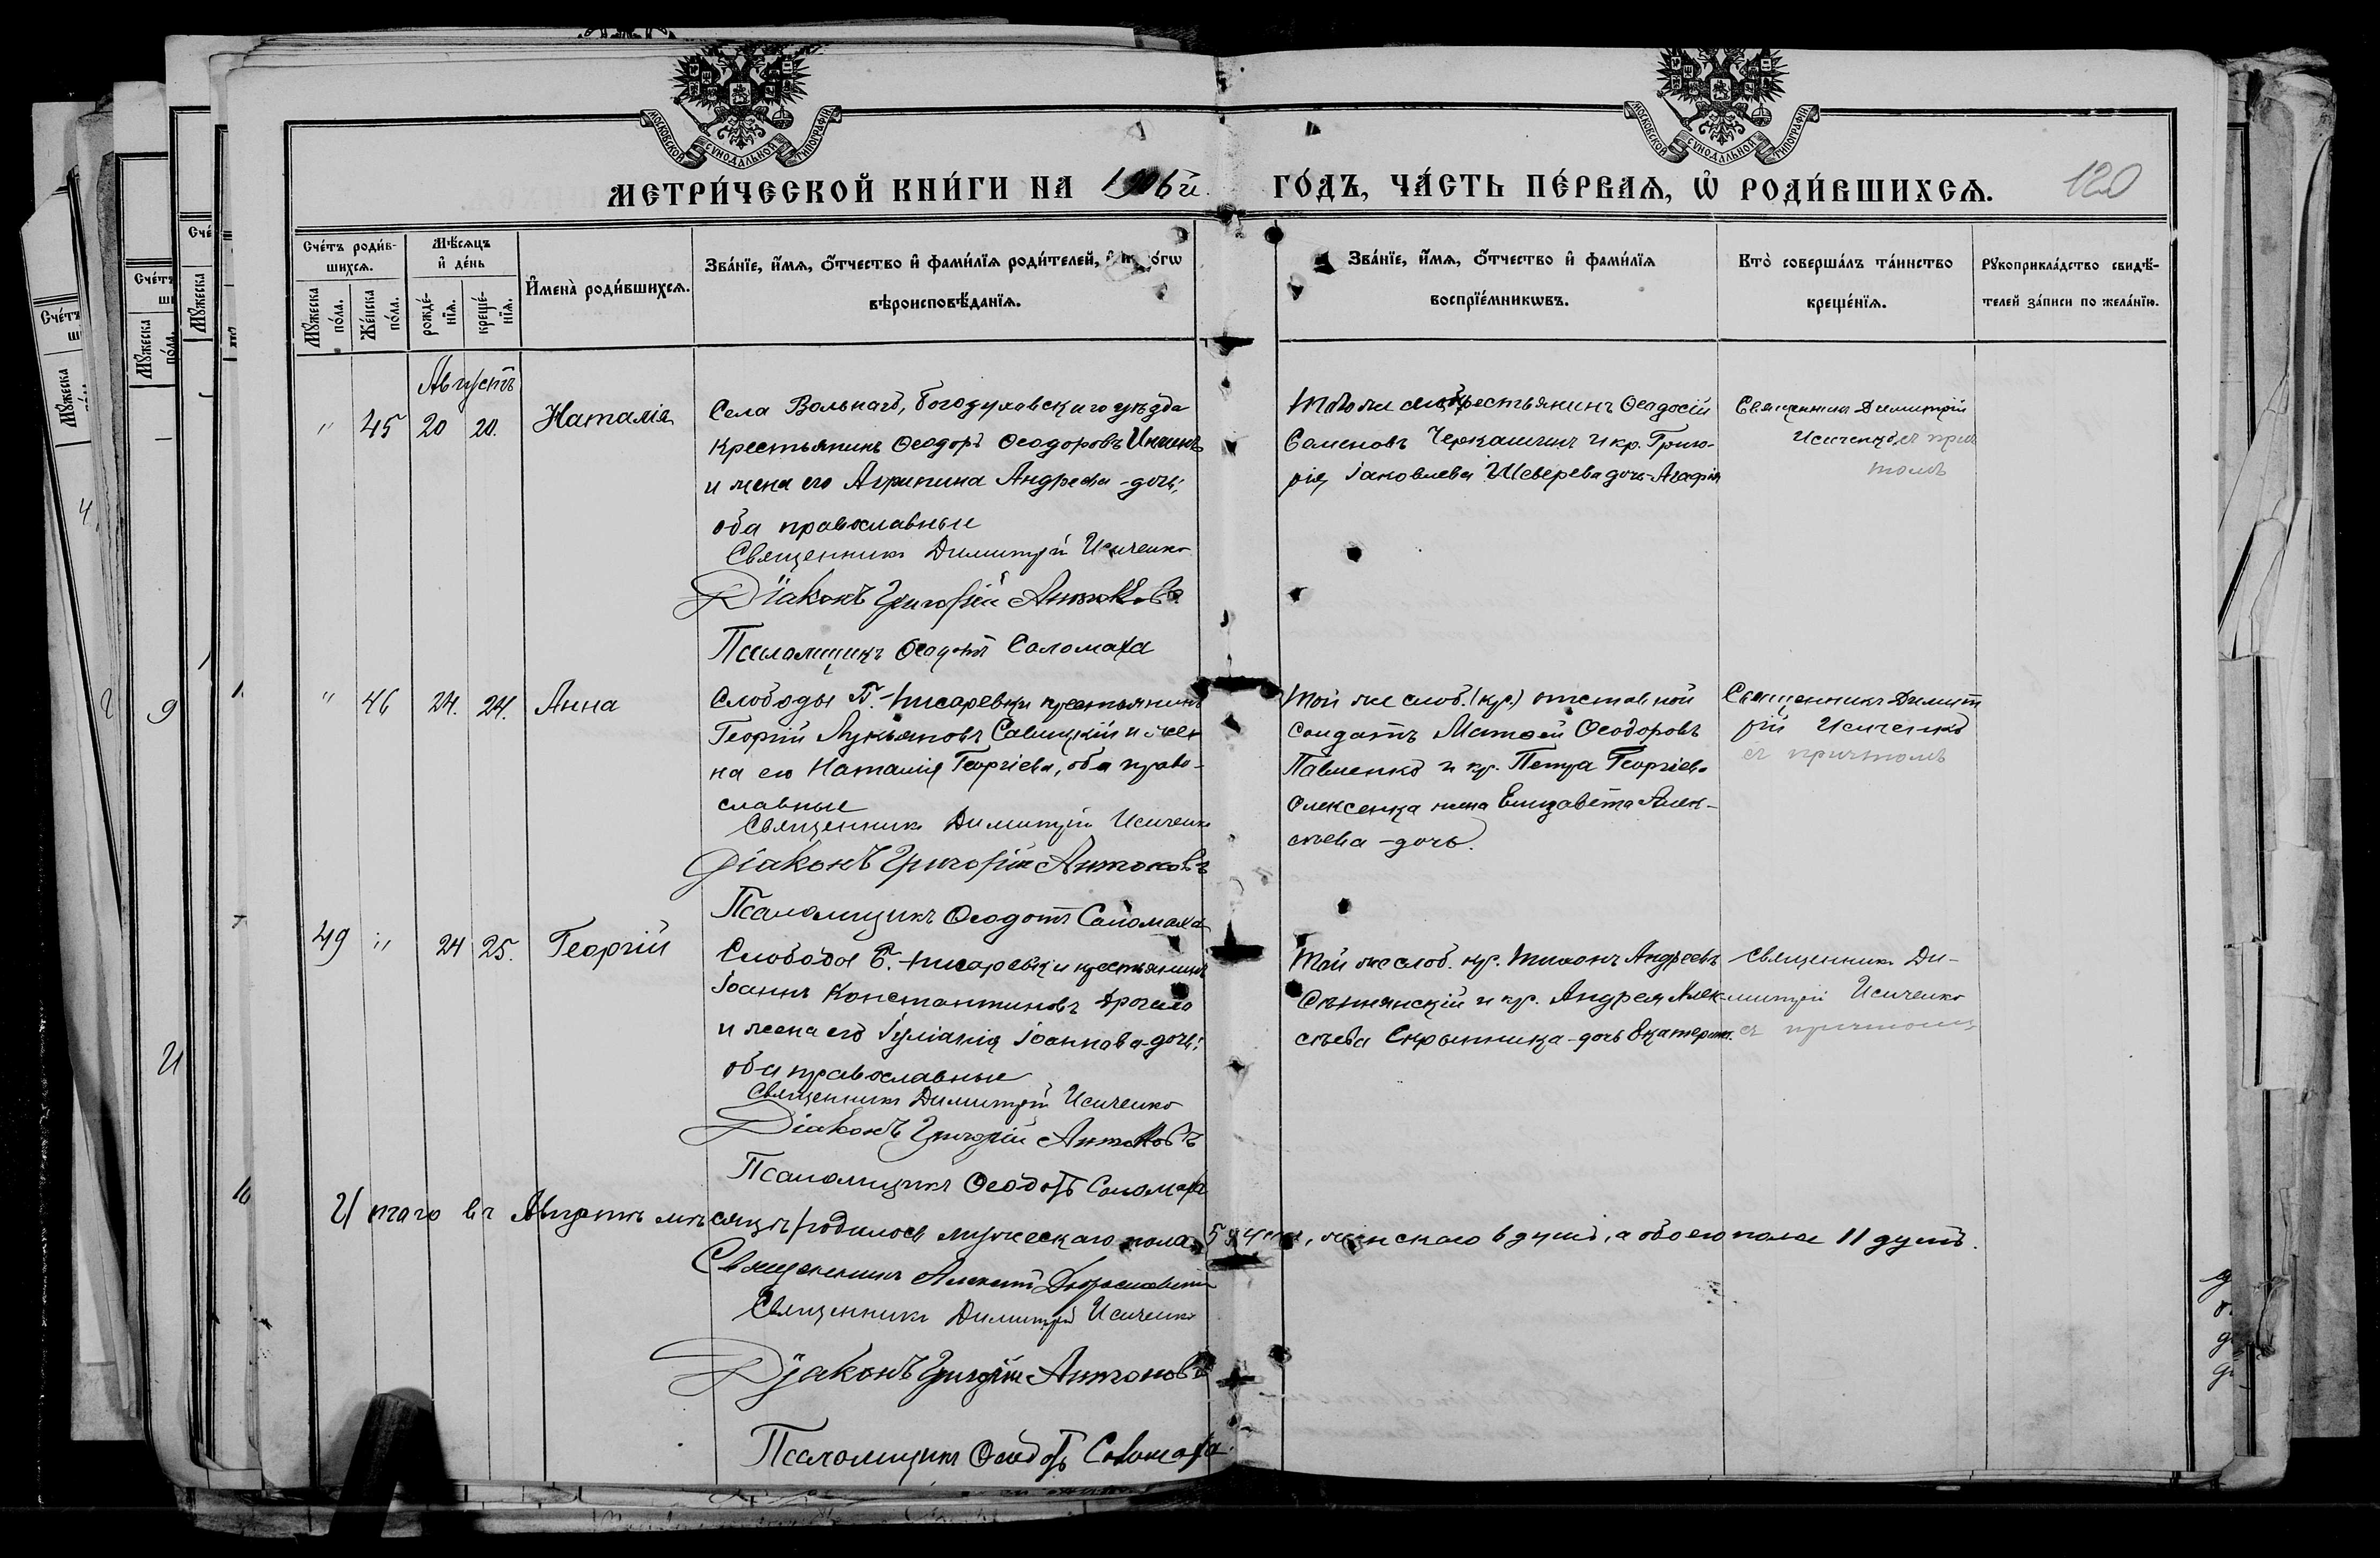 МОСКОВСКОЙ СѴНОДАЛЬНОЙ ТИПОГРАФІИ
МОСКОВСКОЙ СѴНОДАЛЬНОЙ ТИПОГРАФІИ
МЕТРИ́ЧЕСКОЙ КНИ́ГИ НА 1906 й ГО́ДЪ, ЧА́СТЬ ПЕ́РВАѦ, Ѡ҆ РОДИ́ВШИХСѦ.
120
Сче́тъ роди́в-
шихсѧ.
Мꙋ́жеска
по́ла.
Же́нска
по́ла.
Мѣ́сѧцъ
и҆ де́нь
рожде́-
нїѧ.
креще́-
нїѧ.
И҆мена̀ роди́вшихсѧ.
Зва́нїе, и҆́мѧ, ѻ҆́тчество и҆ фами́лїѧ роди́телей,
вѣроисповѣ́данїѧ.
Зва́нїе, и҆́мѧ, ѻ҆́тчество и҆ фами́лїѧ
воспрїе́мникѡвъ.
Кто̀ соверша́лъ та́инство
креще́нїѧ.
Рꙋкоприкла́дство свидѣ́-
телей за́писи по жела́нїю.
Августъ
" 45 20 20. Наталія
Села Вольнаго, Богодуховскаго уѣзда
крестьянинъ Ѳеодоръ Ѳеодоровъ
и жена его Агрипина Андреева-дочь;
оба православные
Священникъ Димитрій Исиченко
Діаконъ Григорій Антоновъ
Псаломщикъ Ѳеодотъ Соломаха
Того же крестьянинъ Ѳеодосій
Семеновъ Черкашинъ и кр. Григо-
рія Іаковлева Шеверева дочь-Агафія
Священникъ Димитрій
Исиченко съ прич
томъ
" 46 24. 24. Анна
Слободы Б.-Писаревки крестьянинъ
Георгій Лукьяновъ Савицкій и же-
на его Наталія Георгіева, оба право-
славные
Священникъ Димитрій Исиченко
Діаконъ Григорій Антоновъ
Псаломщикъ Ѳеодотъ Соломаха
Той же слоб. (кр.) отставной
солдатъ Матѳей Ѳеодоровъ
Павленко и кр. Петра Георгіева
Олексенка жена Елизавета Алек-
сѣева-дочь.
Священникъ Димит
рій Исиченко
съ причтомъ
49 " 24 25. Георгій
Слободы Б.-Писаревки крестьянинъ
Іоаннъ Константиновъ
и жена его Іуліанія Іоаннова-дочь;
оба православные
Священникъ Димитрій Исиченко
Діаконъ Григорій Антоновъ
Псаломщикъ Ѳеодотъ Соломаха
Той же слоб. кр. Тихонъ Андреевъ
Сѣннянскій и кр. Андрея Алек-
сѣева Скрынника-дочь Екатерина.
Священникъ Ди-
митрій Исиченко
съ причтомъ
Итого въ Августѣ мѣсяцѣ родилось мужескаго пола 5 душъ, женскаго 6 душъ, а обоего пола 11 душъ.
Священникъ Алексій
Священникъ Димитрій Исиченко
Діаконъ Григорій Антоновъ
Псаломщикъ Ѳеодотъ Соломаха